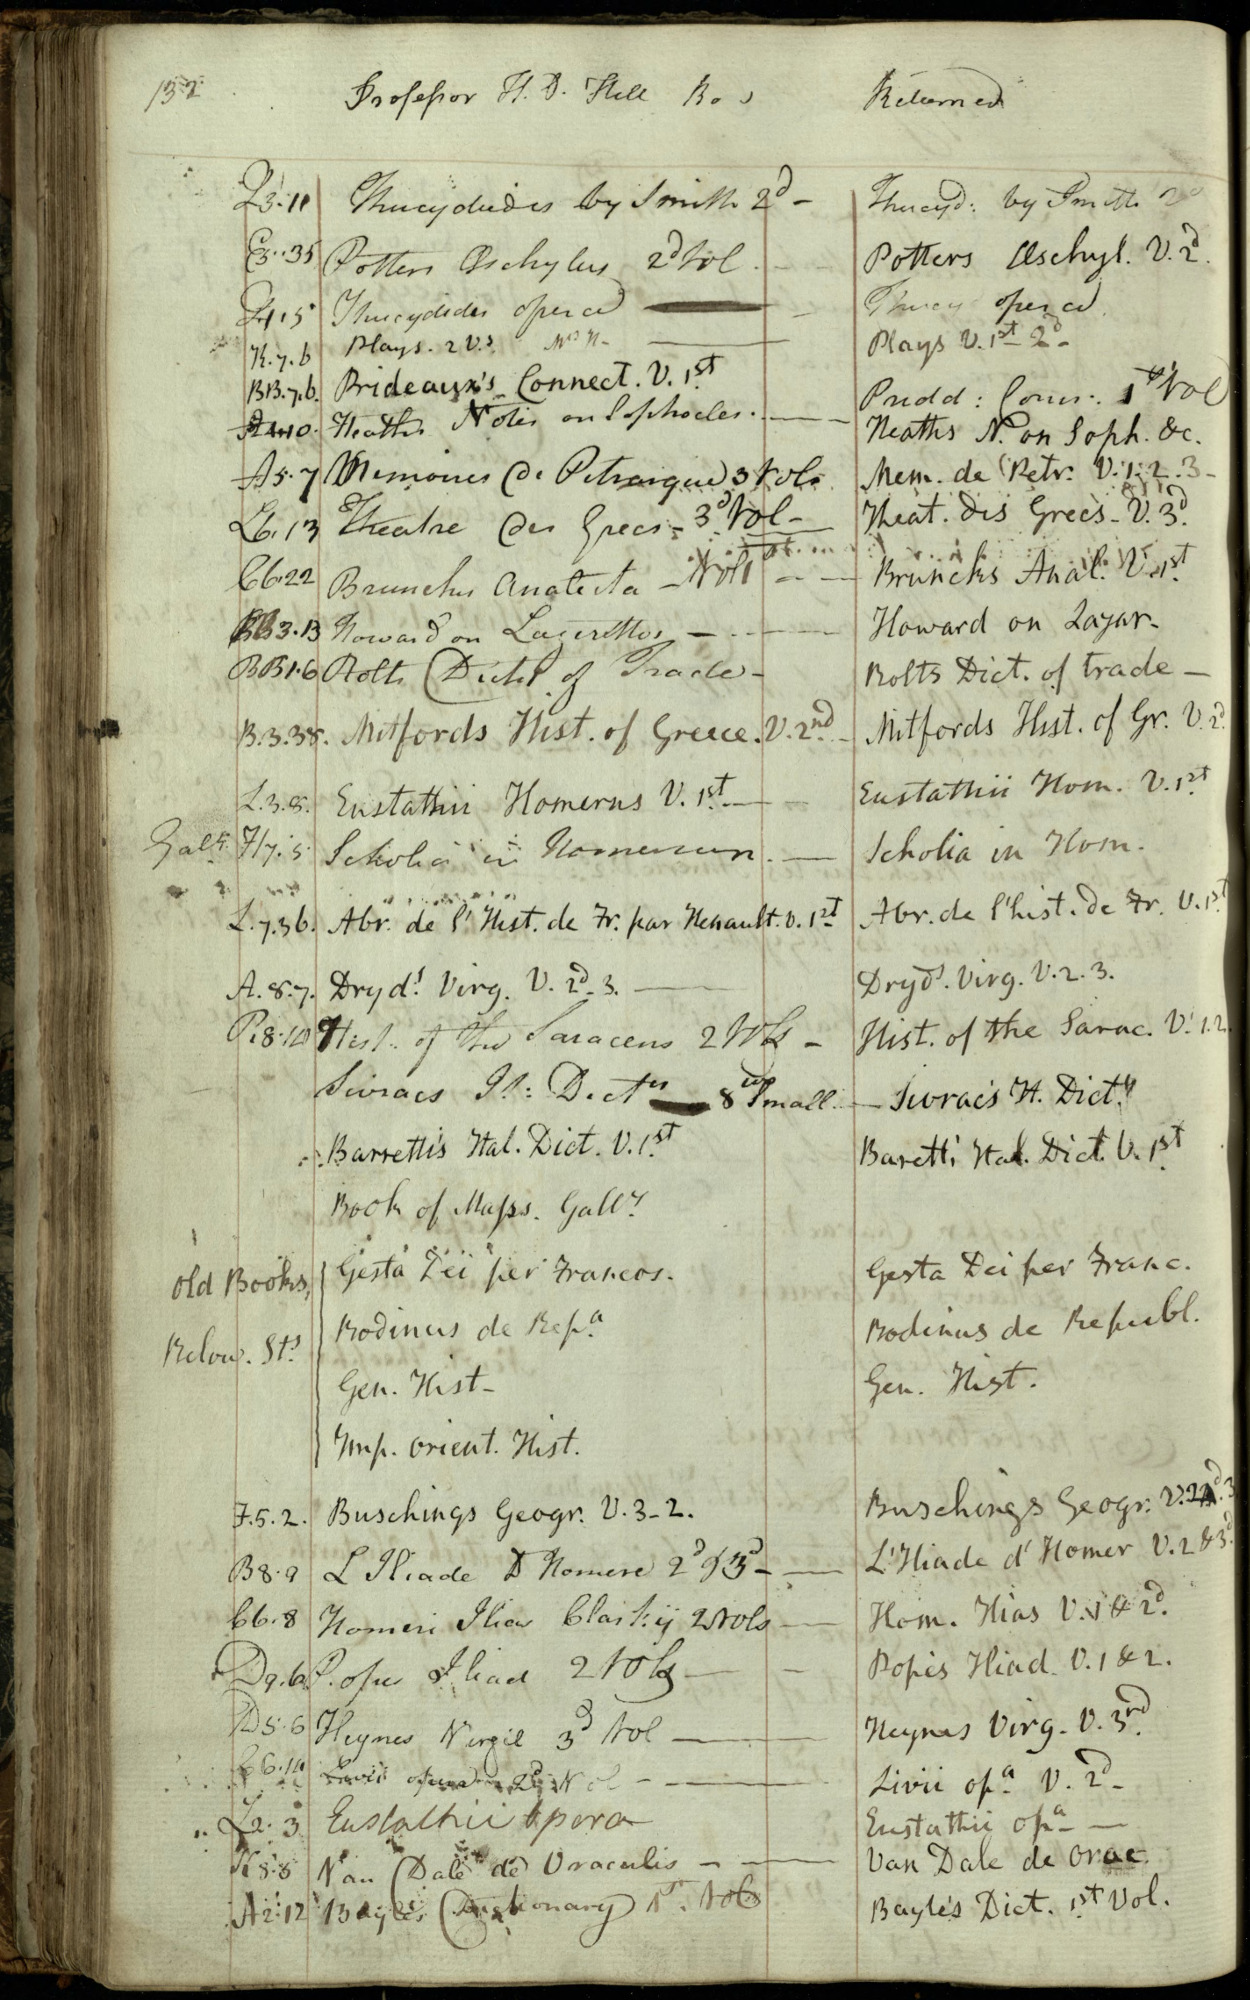 132 Professor H. D. Hill Returned
L3.11 Thucydides by Smith 2d - Thucyd: by Smith 2d
C3.35 Potters Æschylus 2d Vol. - Potters Æschyl. V. 2d.
5 Thucydides opera - Thucy opera
K.7.6 Plays. 2 V.s - Plays V. 1st 2d-
BB.7.6. Brideaux's Connect. V. 1st Pridd: Conn. 1st Vol
Heaths Notes on Sophocles. - Heaths N. on Soph. &c.
A5.7 Memoires de Petrarque 3 Vols Mem. de Petr. V. 1. 2. 3-
L6.13 Theatre des Grecs - 3d Vol - Theat. des Grecs - V. 3d.
C6.22 Brunckis Analecta - Vol 1st - Bruncks Anal. V. 1st
BB3.13 Howard on Lazerettos - Howard on Lazar-
BB1.6 Rolts Dicty of Trade - Rolts Dict. of trade -
B.3.38. Mitfords Hist. of Greece. V. 2nd - Mitfords Hist. of Gr. V. 2d
L.3.8. Eustathii Homerus V. 1st - Eustathii Hom. V. 1st
Galy. H7.5 Scholia in Homerum. - Scholia in Hom.
L.7.36. Abr. de l'Hist. de Fr. par Henault. V. 1st Abr. de l'hist. de Fr. V. 1st
A.8.7. Dryds Virg. V. 2d. 3. - Dryds. Virg. V. 2. 3.
P.8.10 Hist. of the Saracens 2 Vols - Hist. of the Sarac. V. 1. 2
Sivracs It: Dicty 8vo Small. - Sivracs It. Dicty
Barrettis Ital. Dict. V. 1st Baretti Ital. Dict. V. 1st
Book of Maps. Gally
Old Books, Gesta Dei per Francos. Gesta Dei per Franc.
Bodinus de Repa Bodinus de Republ.
Below. Sts
Gen. Hist - Gen. Hist.
Imp. Orient. Hist.
F.5.2. Buschings Geogr. V. 3 - 2. Buschings Geogr: V. 3
B8.9 L Iliade D Homere 2d & 3d - L'Iliade d'Homer V. 2 & 3d
C6.8 Homeri Ilias Clarkij 2 Vols - Hom. Ilias V. 1 & 2d.
D9.6 Popes Iliad 2 Vols - Popes Iliad V. 1 & 2.
D5.6 Heynes Virgil 3d Vol - Heynes Virg. V. 3rd
C6.10 Livii opera 2d Vol - Livii opa V. 2d -
L2.3 Eustathii Opera Eustathii opa -
K8.8 Van Dale de Oraculis - Van Dale de Orac
A2.12 Bayles Dictionary 1st Vol Bayle's Dict. 1st Vol.